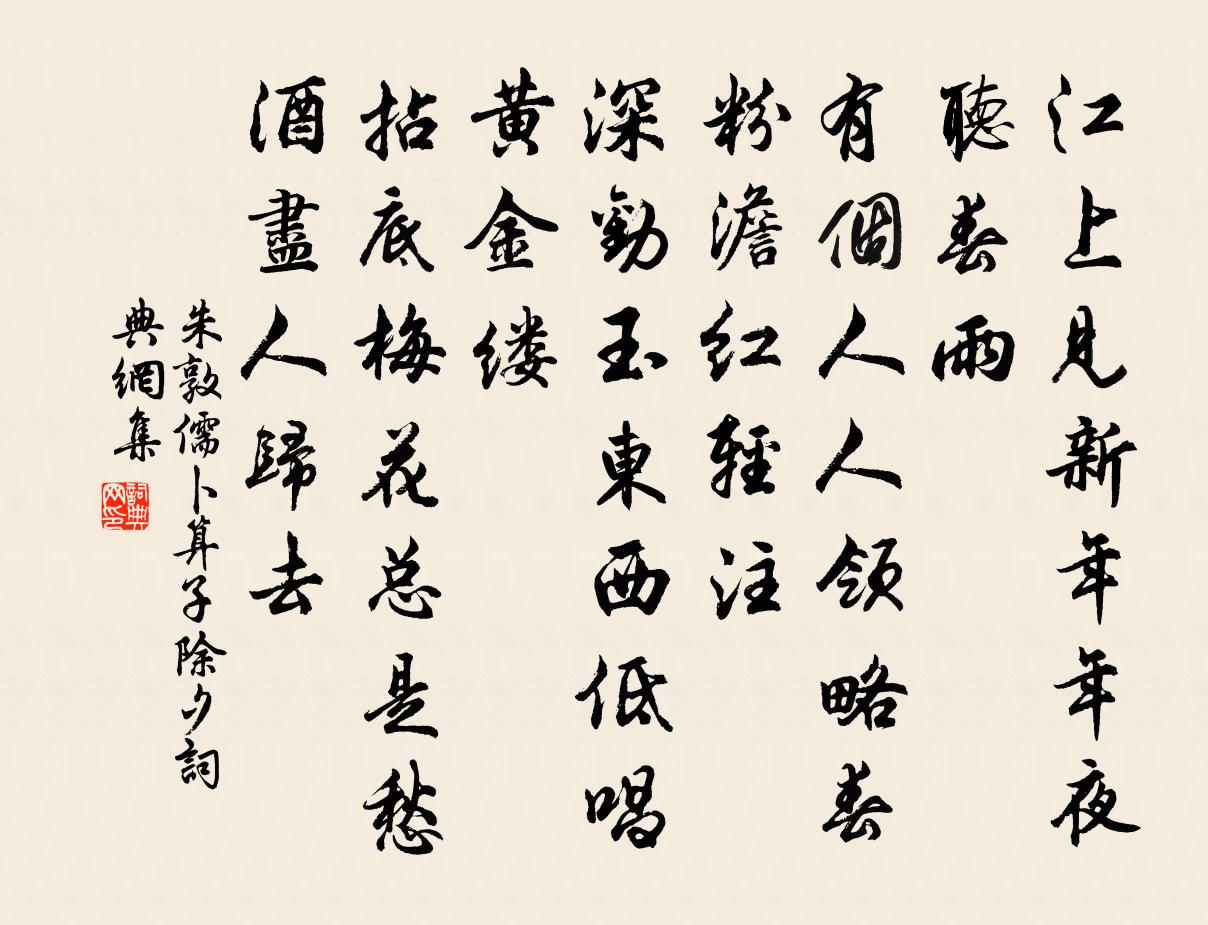 江上見新年年年夜
聽春雨
有個人人領略春
粉澹红輕注
深勸玉東西低唱
黄金缕
拈底梅花总是愁
酒盡人歸去
朱敦儒卜算子除夕詞
典網集
詞典网印